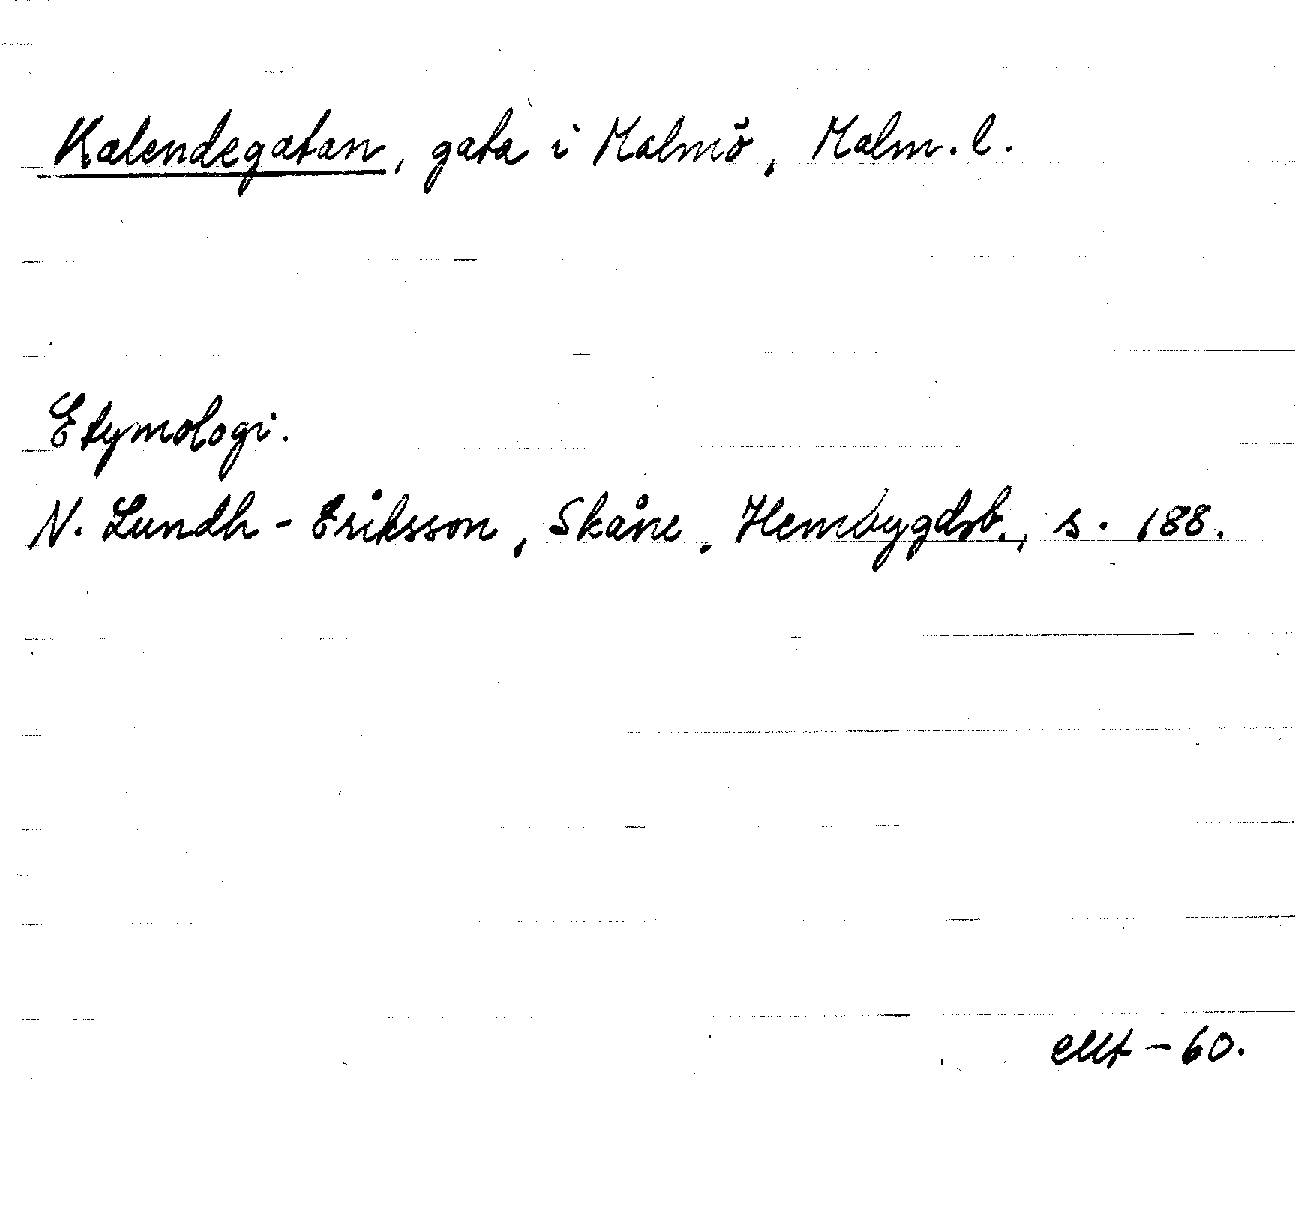 Kalendegatan, gata i Malmö, Malm. l.
Etymologi.
N. Lundh-Eriksson, Skåne. Hembygdsb., s. 188.
-60.